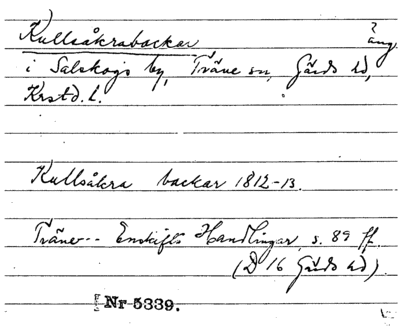 Kullsåkrabackar ? äng.
i Salskogs by, Träne sn, Gärds hd,
Krstd. l.
Kullsåkra backar 1812-13.
Träne -- Enskifts Handlingar, s. 89 ff.
(D 16 Gärds hd).
Nr 5339.